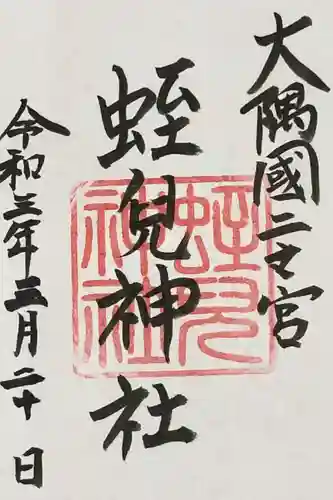 大隅國二之宮
蛭兒神社
令和三年三月二十日
蛭兒神社